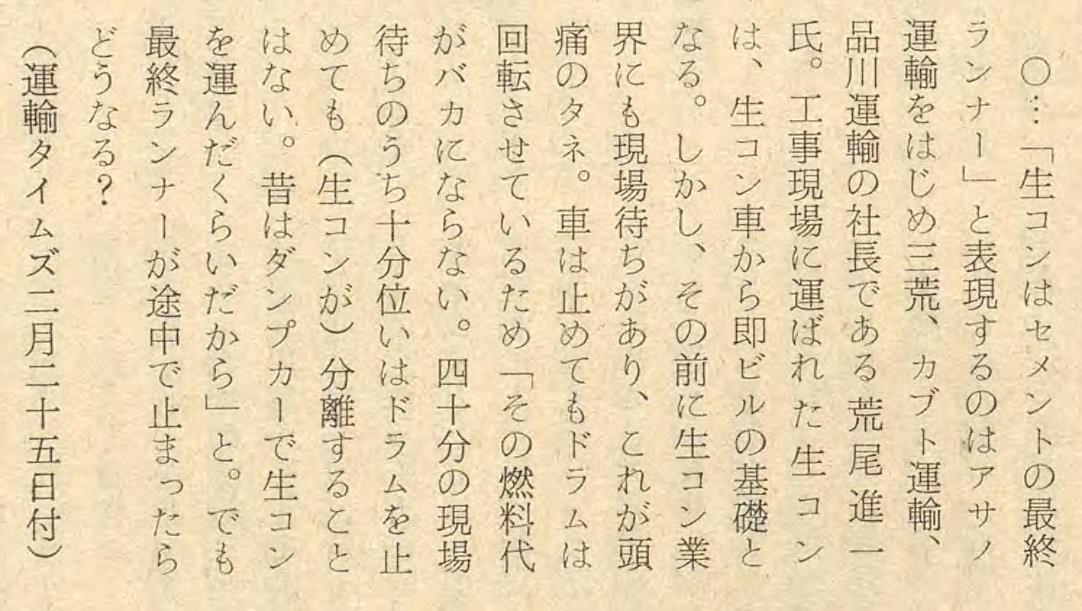 ○…「生コンはセメントの最終
ランナー」と表現するのはアサノ
運輸をはじめ三荒、カブト運輸、
品川運輸の社長である荒尾進一
氏。工事現場に運ばれた生コン
は、生コン車から即ビルの基礎と
なる。しかし、その前に生コン業
界にも現場待ちがあり、これが頭
痛のタネ。車は止めてもドラムは
回転させているため「その燃料代
がバカにならない。四十分の現場
待ちのうち十分位いはドラムを止
めても（生コンが）分離すること
はない。昔はダンプカーで生コン
を運んだくらいだから」と。でも
最終ランナーが途中で止まったら
どうなる？
（運輸タイムズ二月二十五日付）